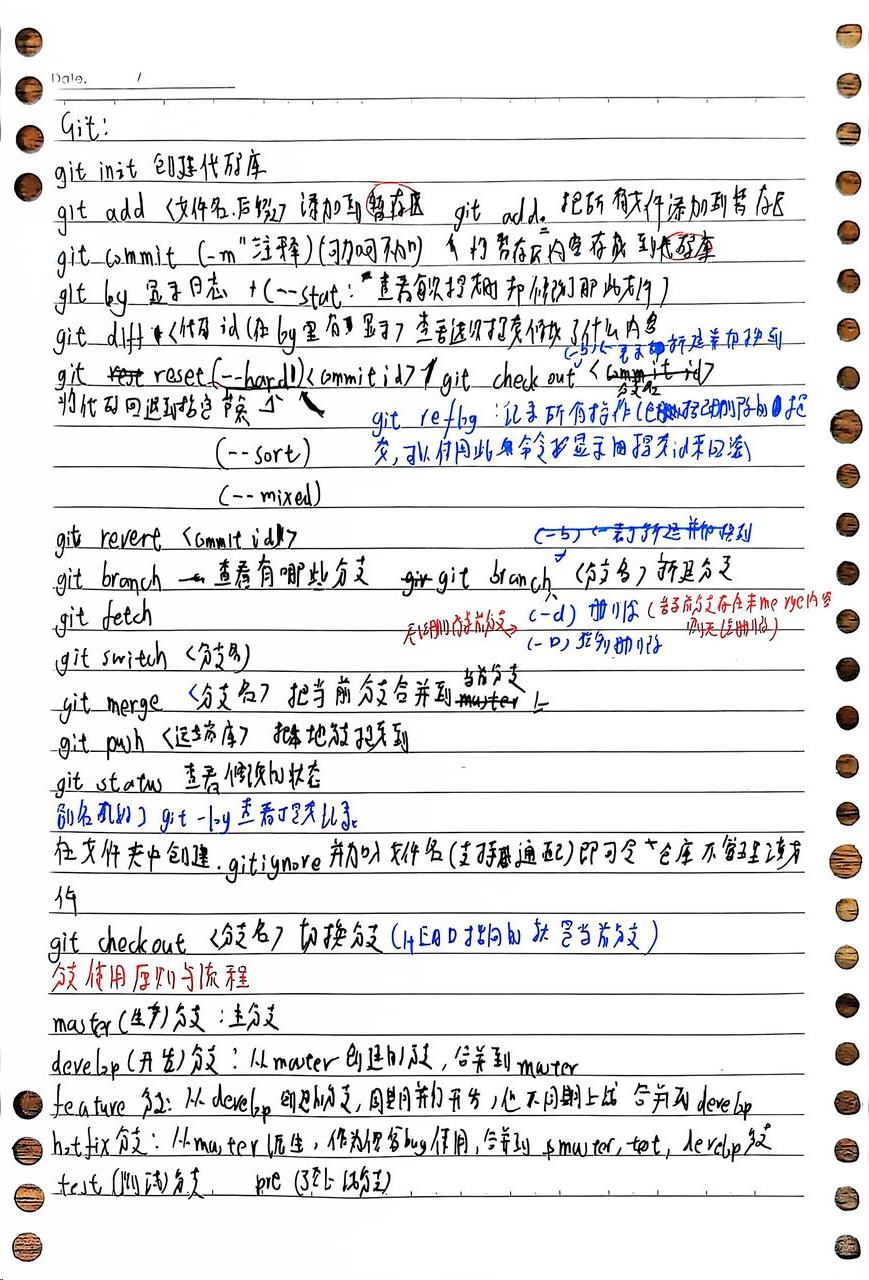 Date. /
Git:
git init 创建代码库
git add <文件名.后缀> 添加到暂存区 git add . 把所有文件添加到暂存区
git commit (-m"注释)(可加可不加) 将暂存区内容存放到代码库
git log 显示日志 +(--stat: 查看每次提交时都修改了那些文件)
git diff <代码id(在log里有显示> 查看这次提交修改了什么内容
(-b)(-表示新建并切换到
git reset (--hard)<commit id> / git check out <commit id>
分支名
将代码回退到指定
git reflog : 记录所有操作(包括已删除的提
交,可以使用此命令显示的提交id来回滚)
(--sort)
(--mixed)
git revert <commit id> (-b)(-表示新建并切换到
git branch 查看有哪些分支 git branch <分支名> 新建分支
git fetch
无法删除当前分支→ (-d) 删除 (若当前分支存在未merge内容
则无法删除)
(-D) 强制删除
git switch <分支名>
git merge <分支名> 把当前分支合并到 master 上
当前分支
git push <远端库> 把本地分支提交到
git status 查看修改的状态
git-log 查看提交记录
在文件夹中创建.gitignore 并加入文件名(支持通配)即可令仓库不管理该文
件
git checkout <分支名> 切换分支 (HEAD指向的就是当前分支)
分支使用原则与流程
master(生产)分支:主分支
develop(开发)分支:从master创建的分支,合并到master
feature 分支:从develop创建的分支,同期并行开发,但不同期上线 合并到 develop
hotfix分支:从master派生,作为修复bug使用,合并到 master, test, develop分支
test(测试)分支 pre (预上线分支)